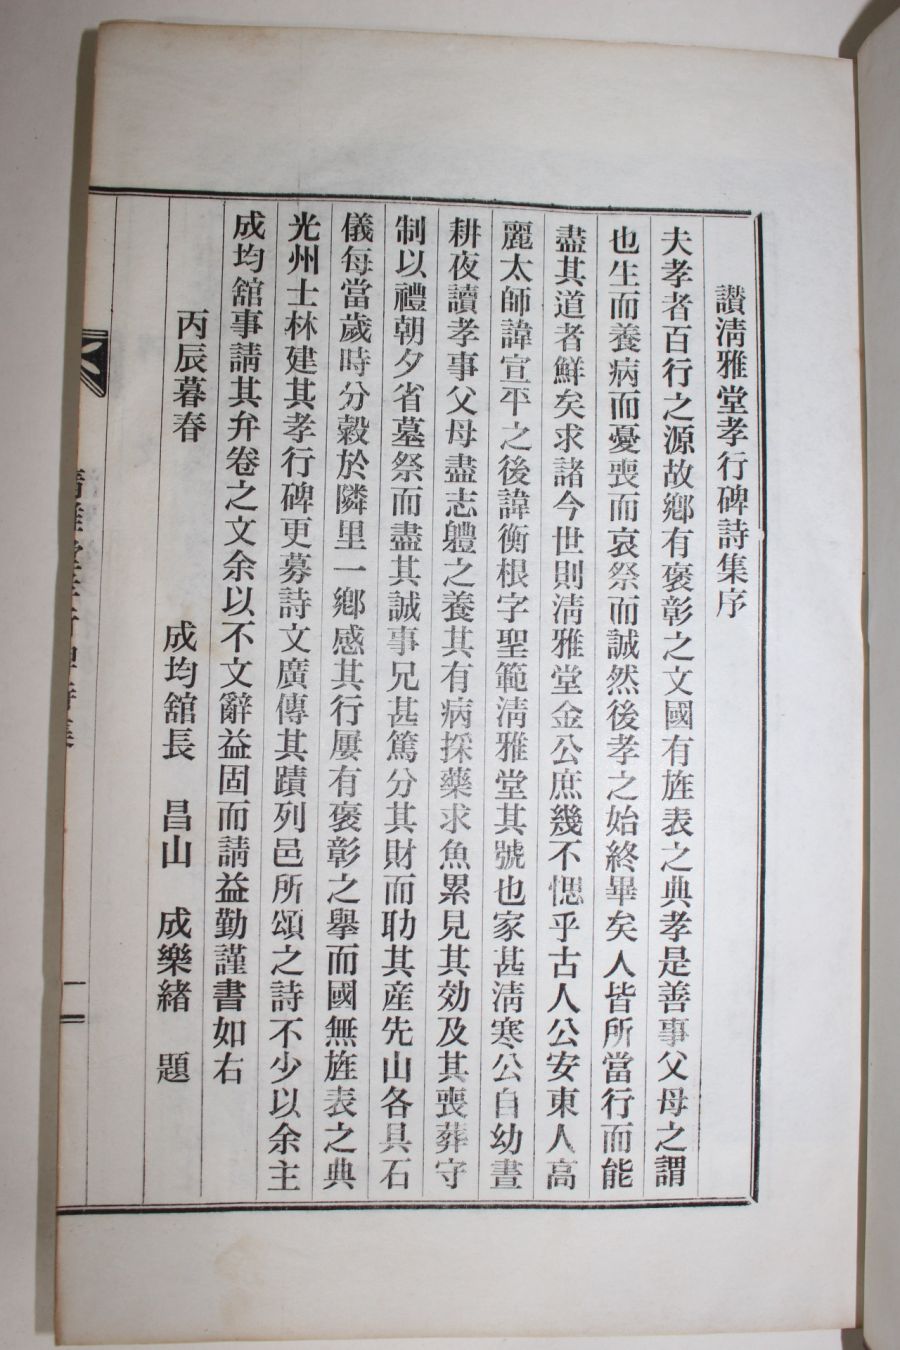 讚淸雅堂孝行碑詩集序
夫孝者百行之源故鄕有褒彰之文國有旌表之典孝是善事父母之謂
也生而養病而憂喪而哀祭而誠然後孝之始終畢矣人皆所當行而能
盡其道者鮮矣求諸今世則淸雅堂金公庶幾不愢乎古人公安東人高
麗太師諱宣平之後諱衡根字聖範淸雅堂其號也家甚淸寒公自幼晝
耕夜讀孝事父母盡志軆之養其有病採藥求魚累見其効及其喪葬守
制以禮朝夕省墓祭而盡其誠事兄甚篤分其財而助其産先山各具石
儀每當歲時分穀於隣里一鄕感其行屢有褒彰之擧而國無旌表之典
光州士林建其孝行碑更募詩文廣傳其蹟列邑所頌之詩不少以余主
成均舘事請其弁卷之文余以不文辭益固而請益勤謹書如右
丙辰暮春
成均舘長 昌山 成樂緖 題
淸雅堂孝行碑詩集
一